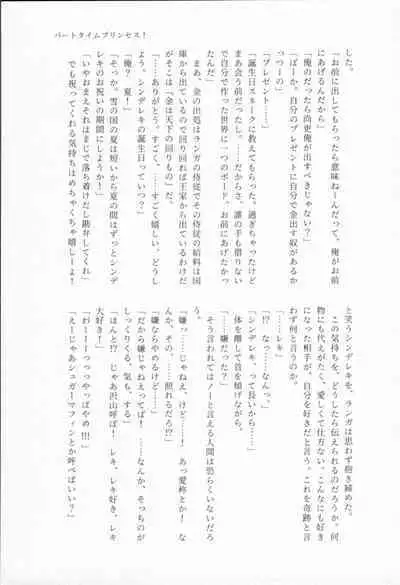 パートタイムプリンセス!
した。
「お前に出してもらったら意味ねーんだって。俺がお前
にあげるんだから」
「俺のだったら尚更俺が出すべきじゃない?」
「ばーか。自分のプレゼントに自分で金出す奴があるか
っつーの」
「プレゼント……」
「誕生日スネークに教えてもらった。過ぎちゃったけど
まあ会う前だったし。……だからさ、誰の手も借りない
で自分で作った世界に一つのボード、お前にあげたかっ
たんだ」
まあ、金の出処はランガの侍従でその侍従の給料は国
庫から出ているので回り回れば王家から出ているわけだ
がそこは「金は天下の回りもの」だ。
「……ありがとう。すごく、……すごく嬉しい。どうし
よう、シンデレキの誕生日っていつ?」
「俺? 夏!」
「そっか。雪の国の夏は短いから夏の間はずっとシンデ
レキのお祝いの期間にしようか!」
「いやおまえそれはまじで落ち着けだし勘弁してくれ」
でも祝ってくれる気持ちはめちゃくちゃ嬉しーよ!
と笑うシンデレキを、ランガは思わず抱き締めた。
この気持ちを、どうしたら伝えられるのだろうか。何
物にも代えがたく、愛しくて仕方ない。こんなにも好き
になった相手が、自分を好きだと言う。これを奇跡と言
わず何と言うのか。
「……レキ」
「!? なっ……なんっ、」
「シンデレキ、って長いから……」
体を離して首を傾げながら。
「……嫌だった?」
そう言われてはノーと言える人間は恐らくいないだろ
う。
「嫌っ……じゃねえ、けど……! あっ愛称とか! な
んか、その、……照れるだろ!?」
「嫌ならやめるけど……」
「だから嫌じゃねぇってば! ……なんか、そっちのが
しっくりくる、気、する」
「ほんと!? じゃあ沢山呼ぼ! レキ、レキ好き、レキ
大好き!」
「がーーーつつつやっぱやめ!!!」
「えーじゃあシュガーマフィンとか呼べばいい?」